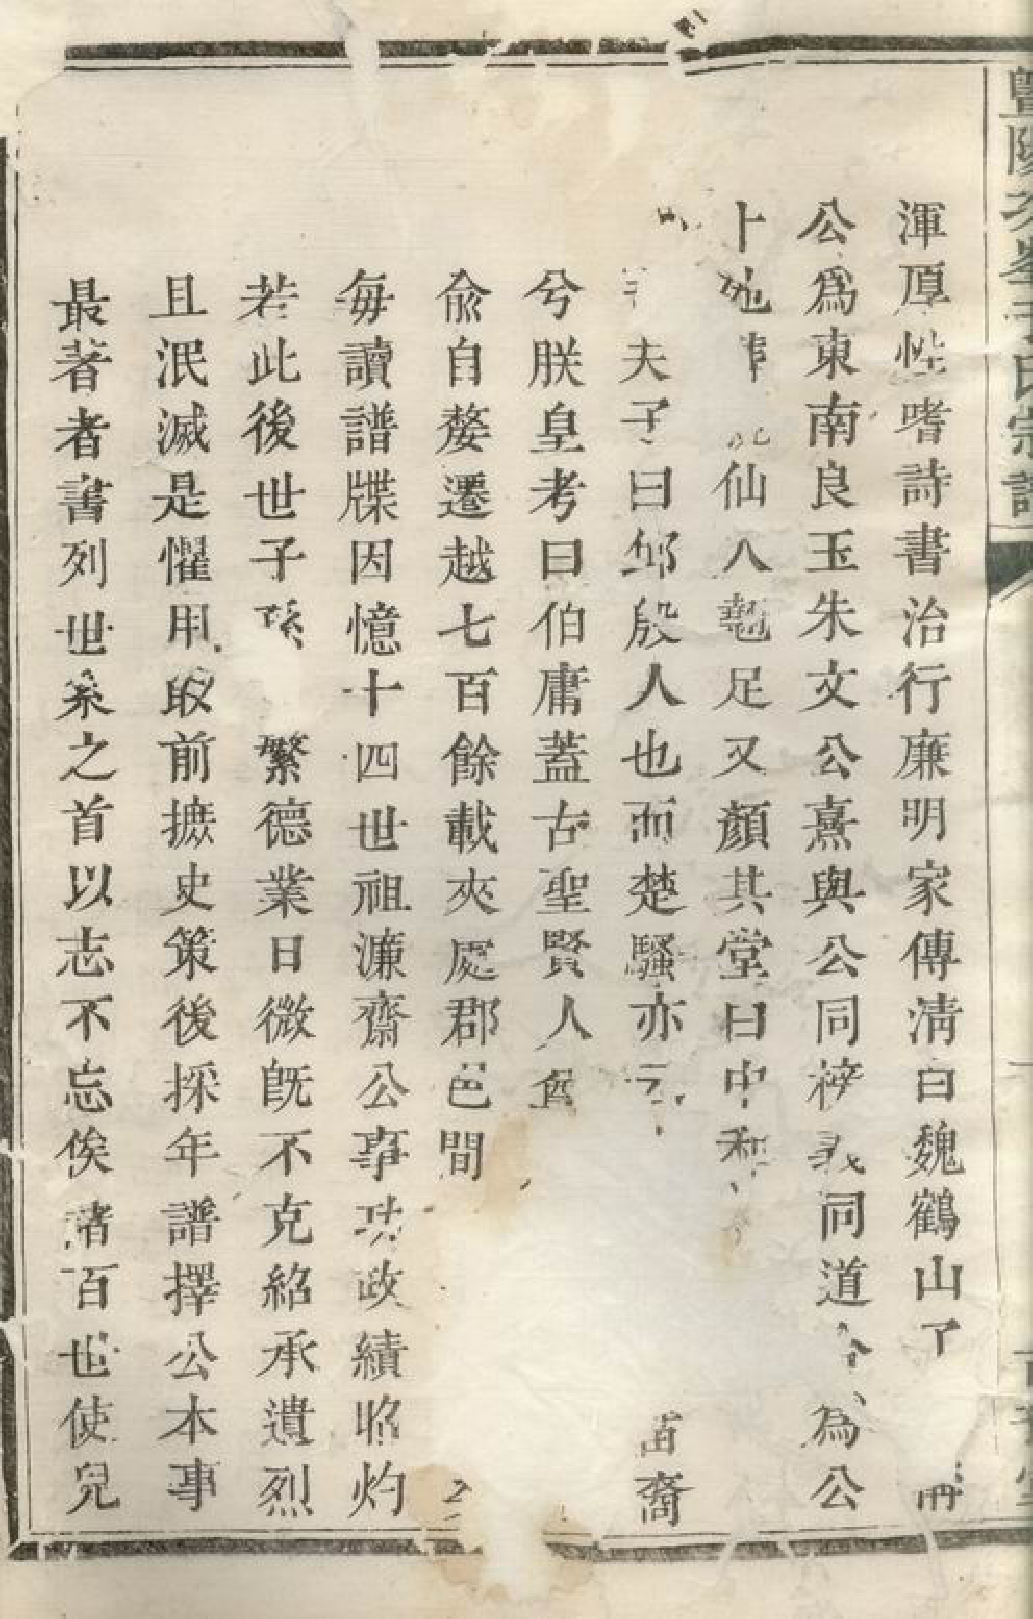 暨陽
氏宗譜
渾厚性嗜詩書治行廉明家傳清白魏鶴山了
公為東南良玉朱文公熹與公同梓義同道今為公
卜地仙人翹足又顏其堂曰中和
夫子曰邱殷人也而楚騷亦云苗裔
兮朕皇考曰伯庸蓋古聖賢人
俞自婺遷越七百餘載夾處郡邑間
每讀譜牒因憶十四世祖濂齋公事功政績昭灼
若此後世子孫繁德業日微旣不克紹承遺烈
且泯滅是懼用敢前摭史策後採年譜擇公本事
最著者書列世系之首以志不忘俟諸百世使兒